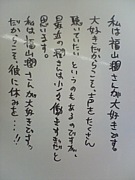 私は福山潤さんが大好きです。
大好きだからこそ、声をたくさん
聴いていたいというのもあるのですが、
最近の福山さんは少し働きすぎだと
思います。
私は福山潤さんが大好きです。
だからこそ、彼に休みを…!!